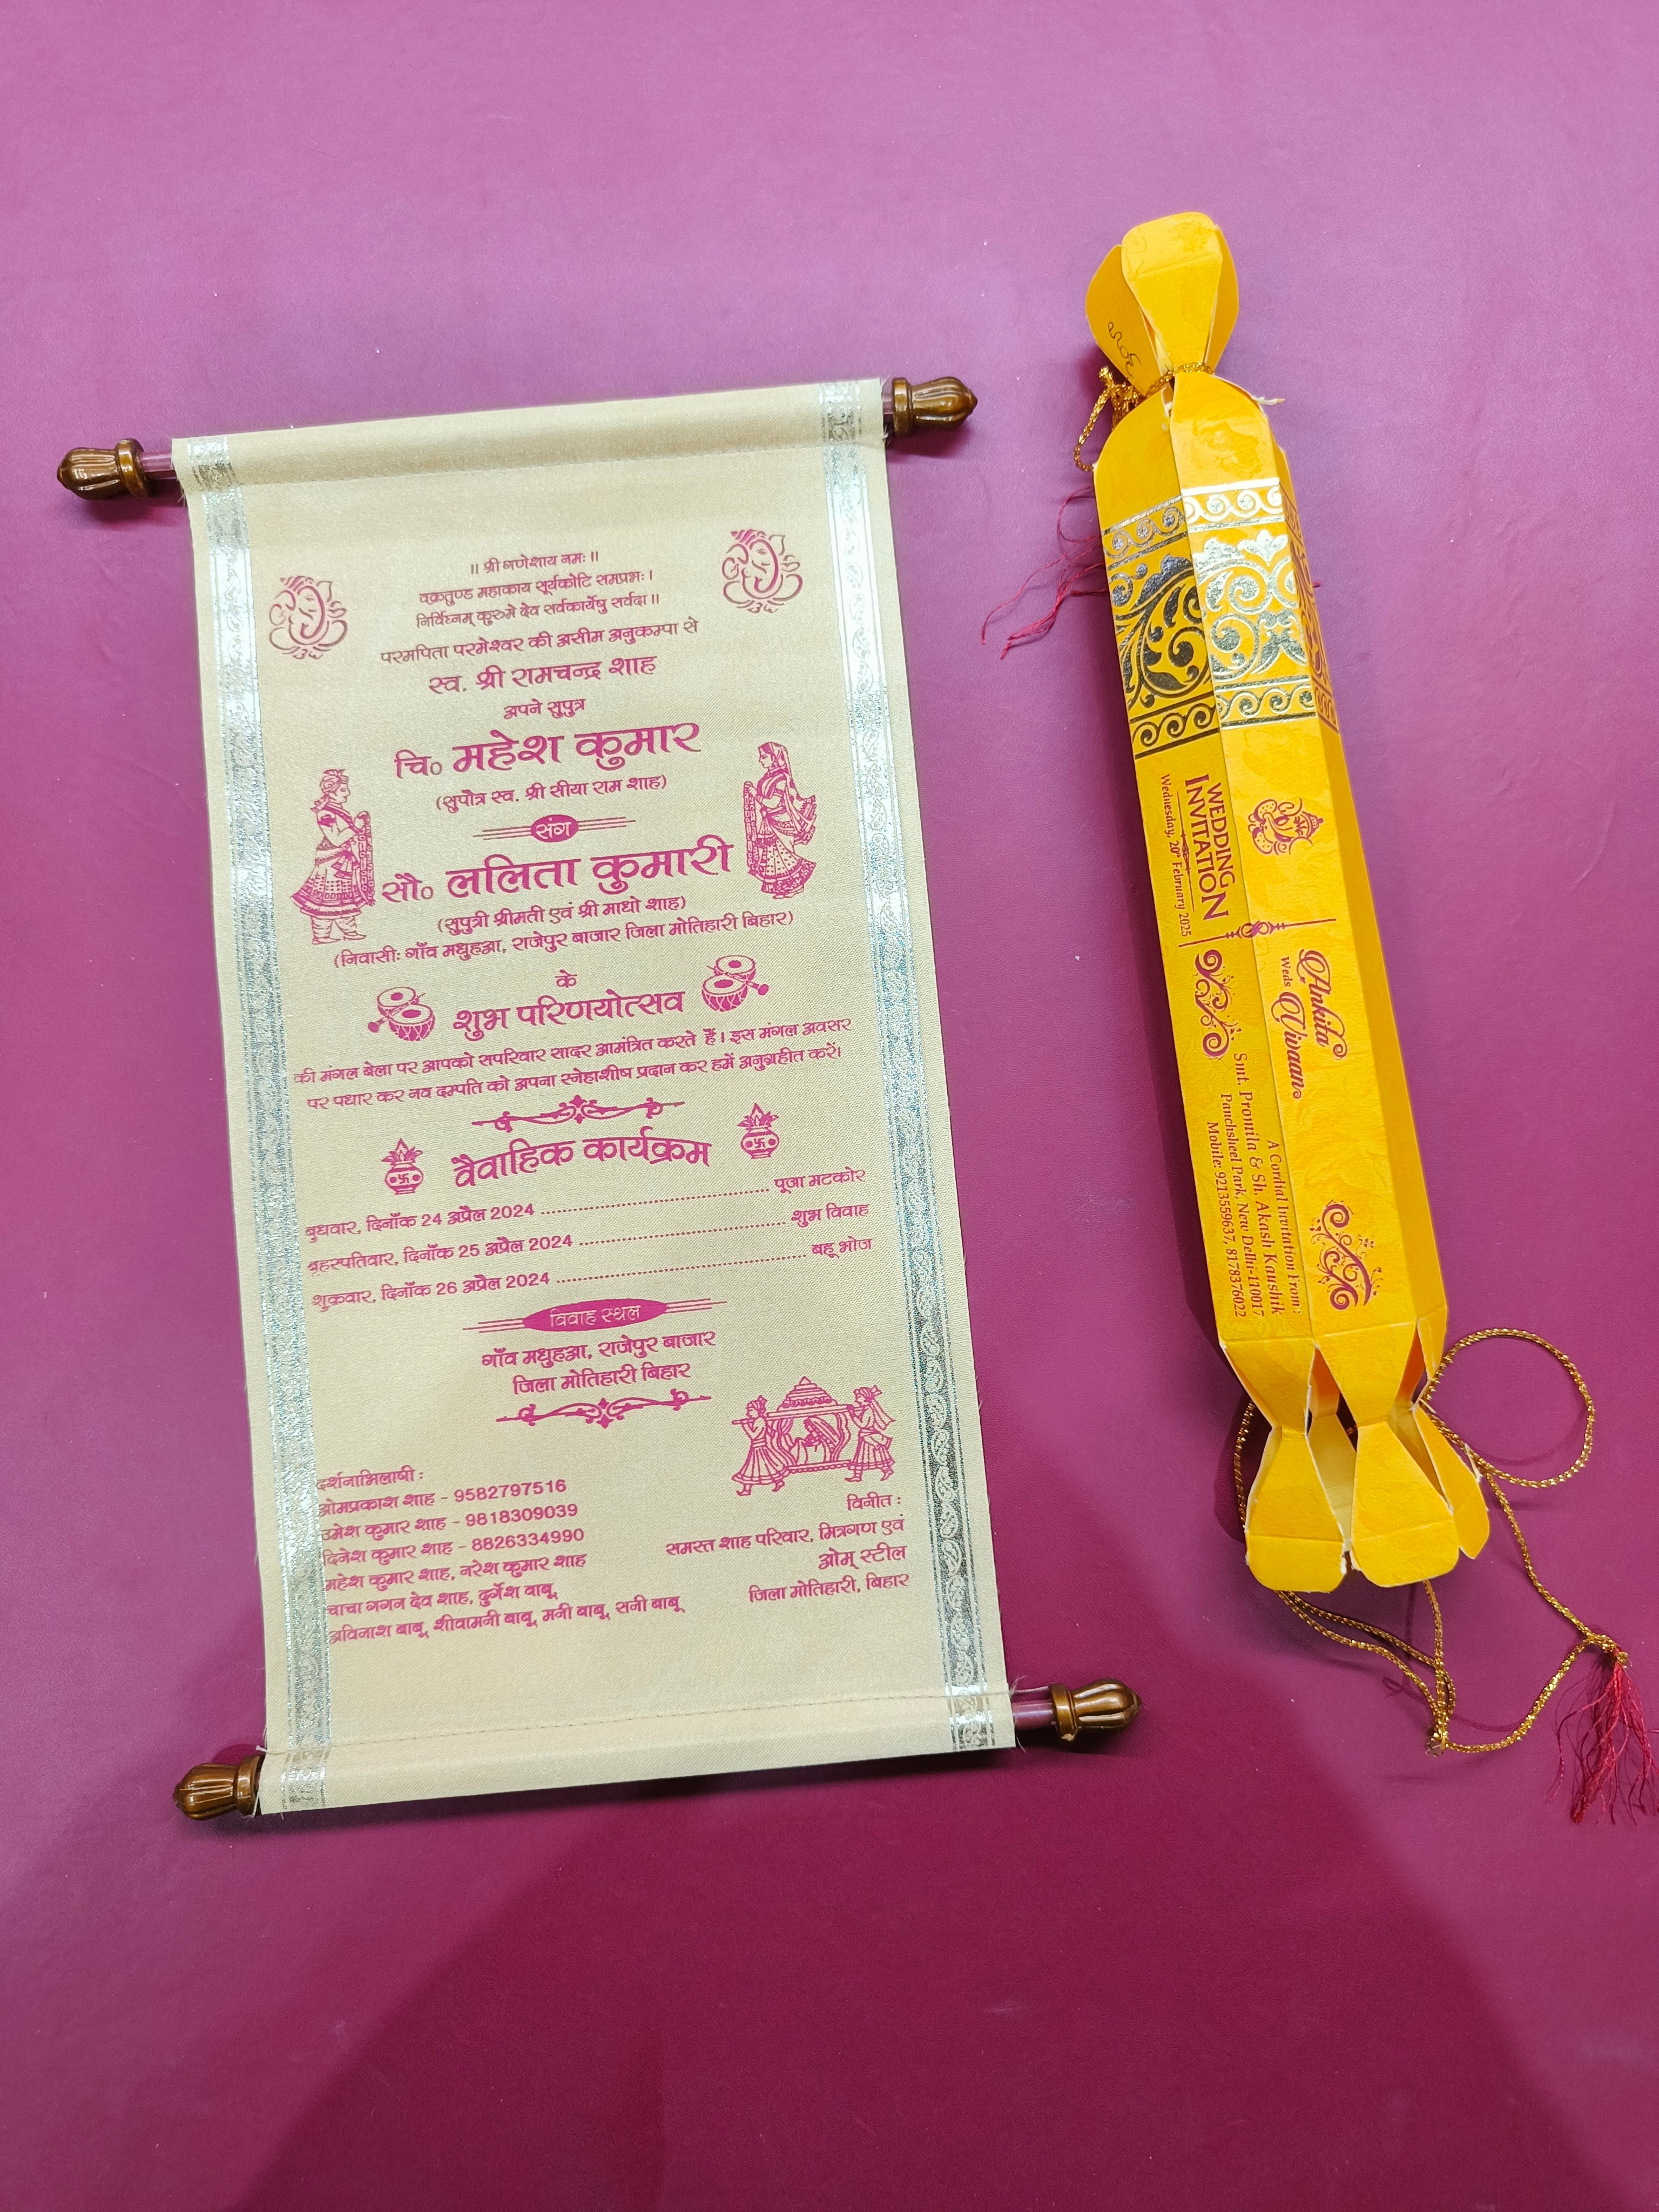 ॥ श्री गणेशाय नमः ॥
वक्रतुण्ड महाकाय सूर्यकोटि समप्रभः ।
निर्विघ्नम् कुरुमे देव सर्वकार्येषु सर्वदा ॥
परमपिता परमेश्वर की असीम अनुकम्पा से
स्व. श्री रामचन्द्र शाह
अपने सुपुत्र
चि० महेश कुमार
(सुपौत्र स्व. श्री सीया राम शाह)
संग
सौ० ललिता कुमारी
(सुपुत्री श्रीमती एवं श्री माधो शाह)
(निवासीः गाँव मधुहआ, राजेपुर बाजार जिला मोतिहारी बिहार)
के
शुभ परिणयोत्सव
की मंगल बेला पर आपको सपरिवार सादर आमंत्रित करते हैं। इस मंगल अवसर
पर पधार कर नव दम्पति को अपना स्नेहाशीष प्रदान कर हमें अनुग्रहीत करें।
वैवाहिक कार्यक्रम
बुधवार, दिनाँक 24 अप्रैल 2024 ........................................ पूजा मटकोर
बृहस्पतिवार, दिनाँक 25 अप्रैल 2024 ........................................ शुभ विवाह
शुक्रवार, दिनाँक 26 अप्रैल 2024 ........................................ बहू भोज
विवाह स्थल
गाँव मधुहआ, राजेपुर बाजार
जिला मोतिहारी बिहार
दर्शनाभिलाषी :
ओमप्रकाश शाह - 9582797516
उमेश कुमार शाह - 9818309039
दिनेश कुमार शाह - 8826334990
महेश कुमार शाह, नरेश कुमार शाह
चाचा गगन देव शाह, दुर्गेश बाबू,
अविनाश बाबू, शीवामनी बाबू, मनी बाबू, सनी बाबू
विनीत :
समस्त शाह परिवार, मित्रगण एवं
ओम् स्टील
जिला मोतिहारी, बिहार
WEDDING
INVITATION
Wednesday, 20th February 2025
Ankita
Weds Vivaan
A Cordial Invitation From :
Smt. Promila & Sh. Akash Kaushik
Panchsheel Park, New Delhi-110017
Mobile: 9213559637, 8178376022